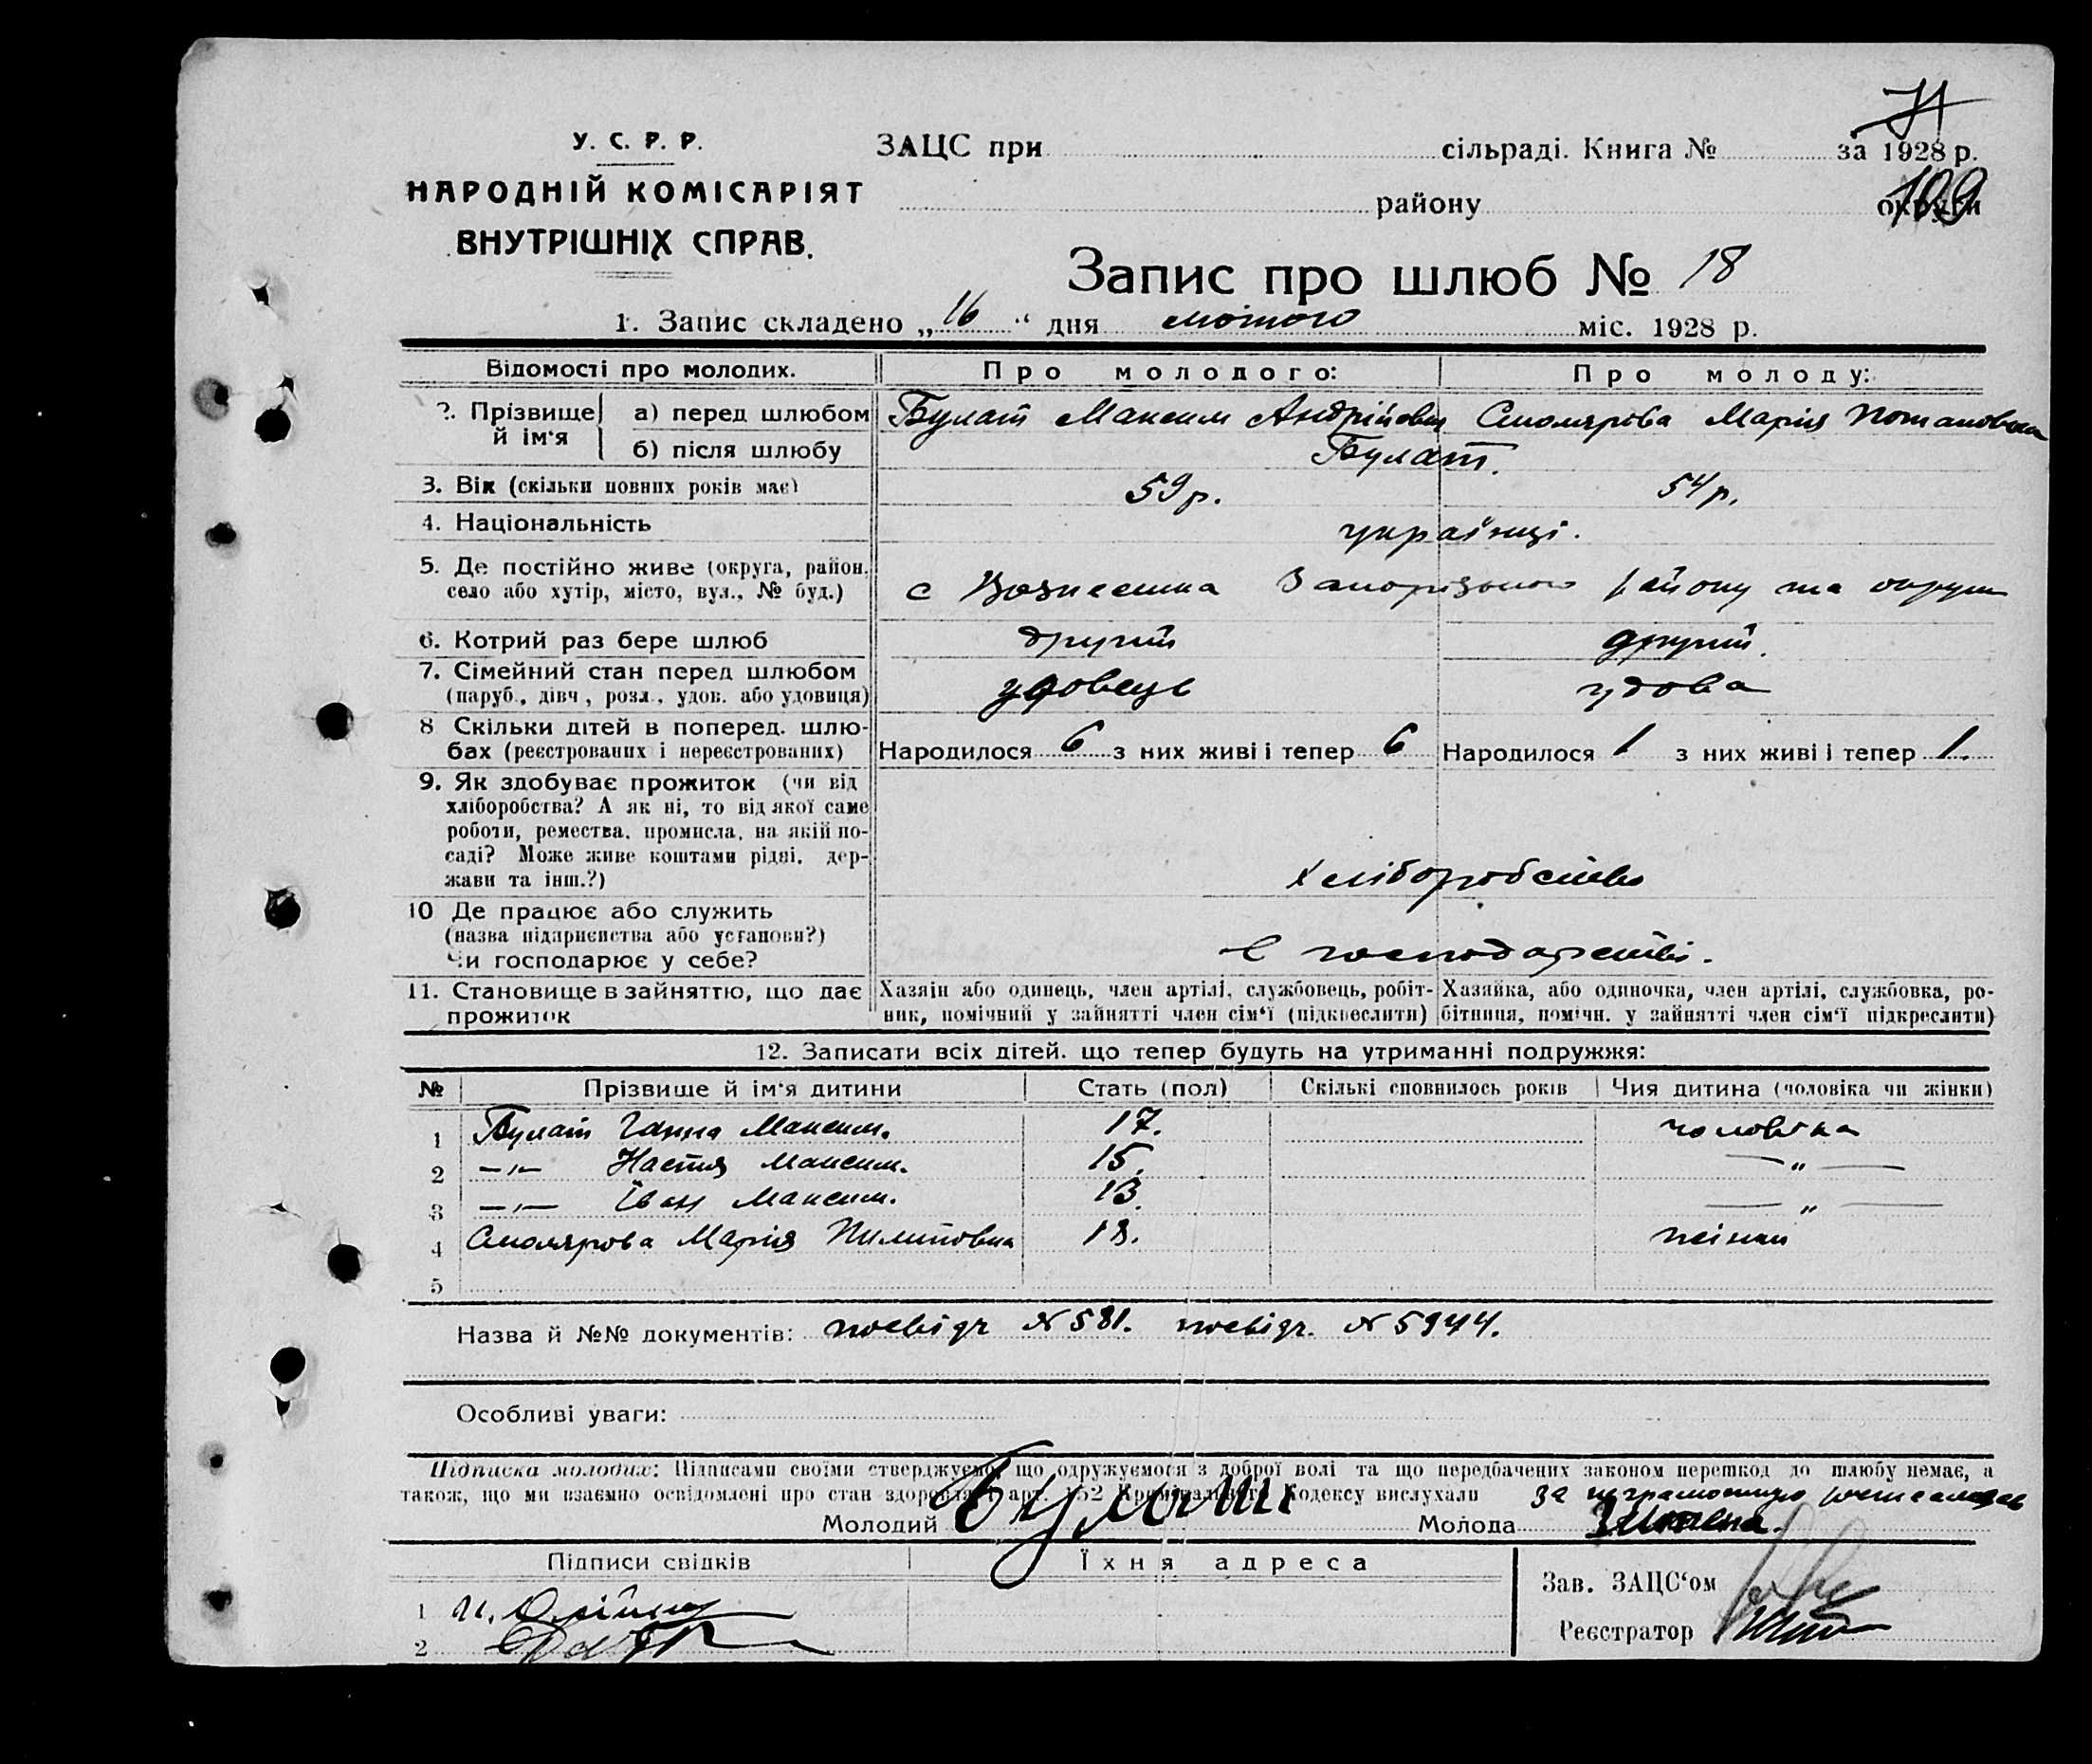 У. С. Р. Р.
НАРОДНІЙ КОМІСАРІЯТ
ВНУТРІШНІХ СПРАВ.
ЗАЦС при сільраді. Книга № за 1928 р.
району округи
109
Запис про шлюб № 18
1. Запис складено „ 16 “ дня лютого міс. 1928 р.
Відомості про молодих. Про молодого: Про молоду:
2. Прізвище й ім‘я а) перед шлюбом Булат Максим Андрійович Столярова Марія Потаповна
б) після шлюбу Булат.
3. Вік (скільки повних років має) 59 р. 54 р.
4. Національність українці.
5. Де постійно живе (округа, район,
село або хутір, місто, вул., № буд.) с Вознесенка Запорізького району та округи
6. Котрий раз бере шлюб другий другий.
7. Сімейний стан перед шлюбом
(паруб., дівч., розл., удов. або удовиця) удовець удова
8 Скільки дітей в поперед. шлю-
бах (реєстрованих і нереєстрованих) Народилося 6 з них живі і тепер 6 Народилося 1 з них живі і тепер 1.
9. Як здобуває прожиток (чи від
хліборобства? А як ні, то від якої саме
роботи, ремества, промисла, на якій по-
саді? Може живе коштами рідні, дер-
жави та інш.?) хліборобство
10 Де працює або служить
(назва підприємства або установи?)
Чи господарює у себе? в господарстві.
11. Становище в зайняттю, що дає
прожиток
Хазяін або одинець, член артілі, службовець, робіт-
ник, помічний у зайнятті член сім‘ї (підкреслити)
Хазяйка, або одиночка, член артілі, службовка, ро-
бітниця, помічн. у зайнятті член сім‘ї підкреслити)
12. Записати всіх дітей, що тепер будуть на утриманні подружжя:
№ Прізвище й ім‘я дитини Стать (пол) Скількі сповнилось років Чия дитина (чоловіка чи жінки)
1 Булат Ганна Максим. 17. чоловіка
2 —„— Настя Максим. 15. —„—
3 —„— Іван Максим. 13 —„—
4 Столярова Марія Пилиповна 18. жінки
5
Назва й №№ документів: посвідч № 581. посвідч. № 5944.
Особливі уваги:
Підписка молодих: Підписами своїми стверджуємо, що одружуємося з доброї волі та що передбачених законом перешкод до шлюбу немає, а
також, що ми взаємно освідомлені про стан здоровля й арт. 152 Кримінального Кодексу вислухали за неграмотную
Молодий Булат Молода
Підписи свідків Їхня адреса
1
2
Зав. ЗАЦС‘ом
Реєстратор